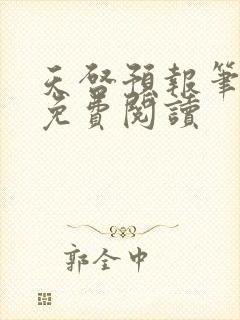 天啓預報筆
免費閱讀
郭全中